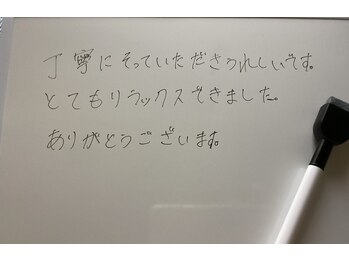 丁寧にそっていただきうれしいです。
とてもリラックスできました。
ありがとうございます。